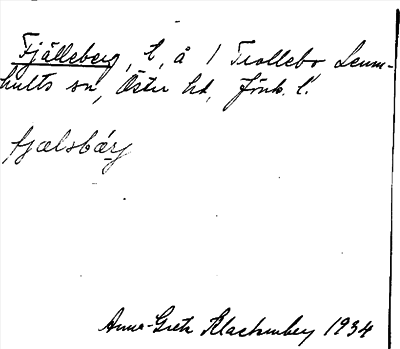 Fjälleberg, t, å 1 Trollebo Lemn-
hults sn, Östra hd, Jönk. l.
fjælsbárj
Anna-Greta Klackenberg 1934